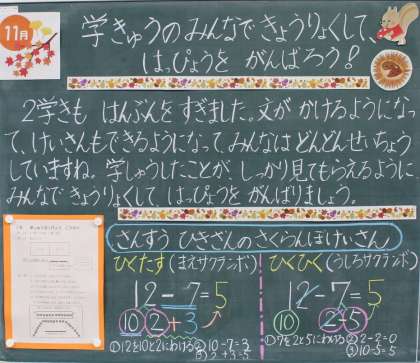 11月
学きゅうのみんなできょうりょくして、
はっぴょうを がんばろう！
2学きも はんぶんをすぎました。文が かけるようになっ
て、けいさんもできるようになって、みんなは どんどんせいちょう
していますね。学しゅうしたことが、しっかり見てもらえるように
みんなで きょうりょくして、はっぴょうを がんばりましょう。
さんすう ひきざんのさくらんぼけいさん
ひくたす(まえサクランボ)
12-7=5
10 2 +3
①12を10と2にわける ②10-7=3
③2+3=5
ひくひく(うしろサクランボ)
12-7=5
10 2 5
①7を2と5にわける ②2-2=0
③10-5=5